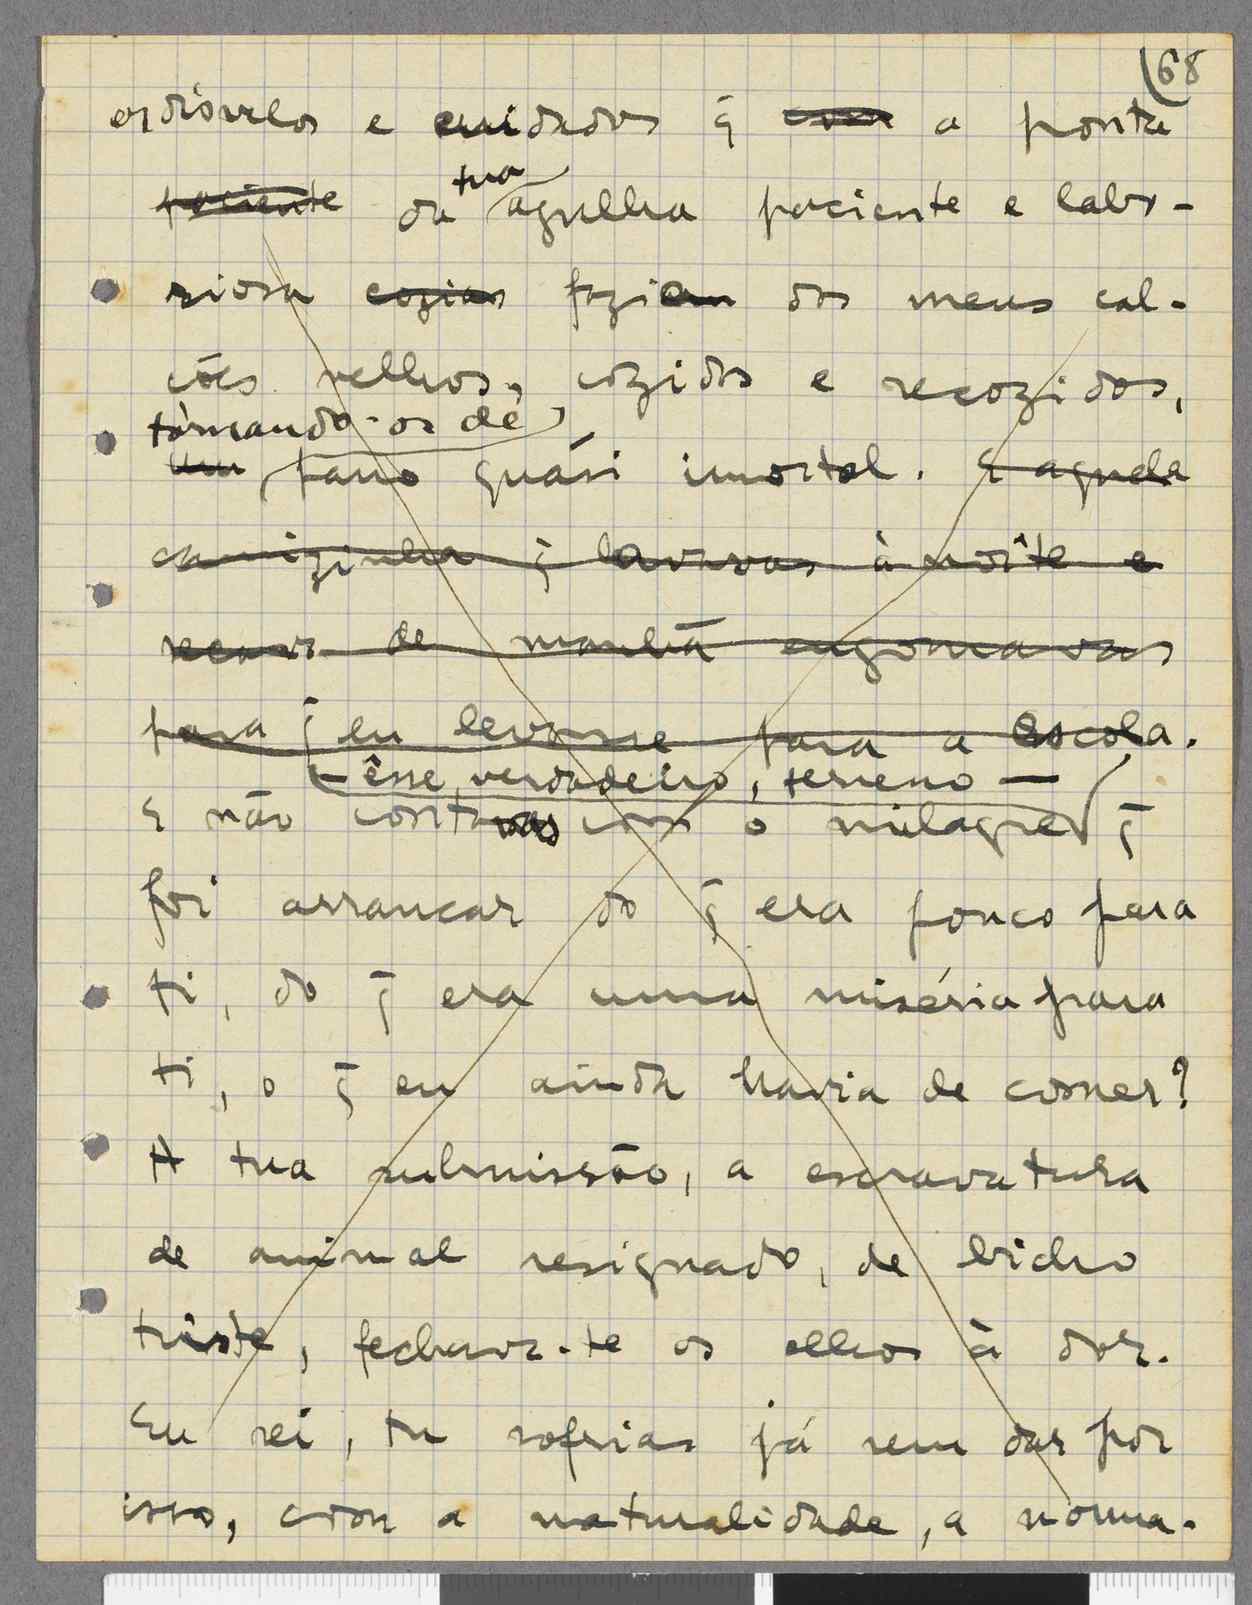 68
os disvelos e cuidados q̃ com a ponta
paciente da tua agulha paciente e labo-
riosa cozias faziam dos meus cal-
ções velhos, cozidos e recozidos,
tornando-os de
um pano quási imortal. E aquela
camizinha q̃ lavavas à noite e
de manhã engomavas
para q̃ eu levasse para a escola.
— êsse, verdadeiro, terreno —
E não contavas com o milagre q̃
foi arrancar do q̃ era pouco para
ti, do q̃ era uma miséria para
ti, o q̃ eu ainda havia de comer?
A tua submissão, a escravatura
de animal resignado, de bicho
triste, fechava-te os olhos à dor.
Eu sei, tu sofrias já sem dar por
isso, com a naturalidade, a norma-